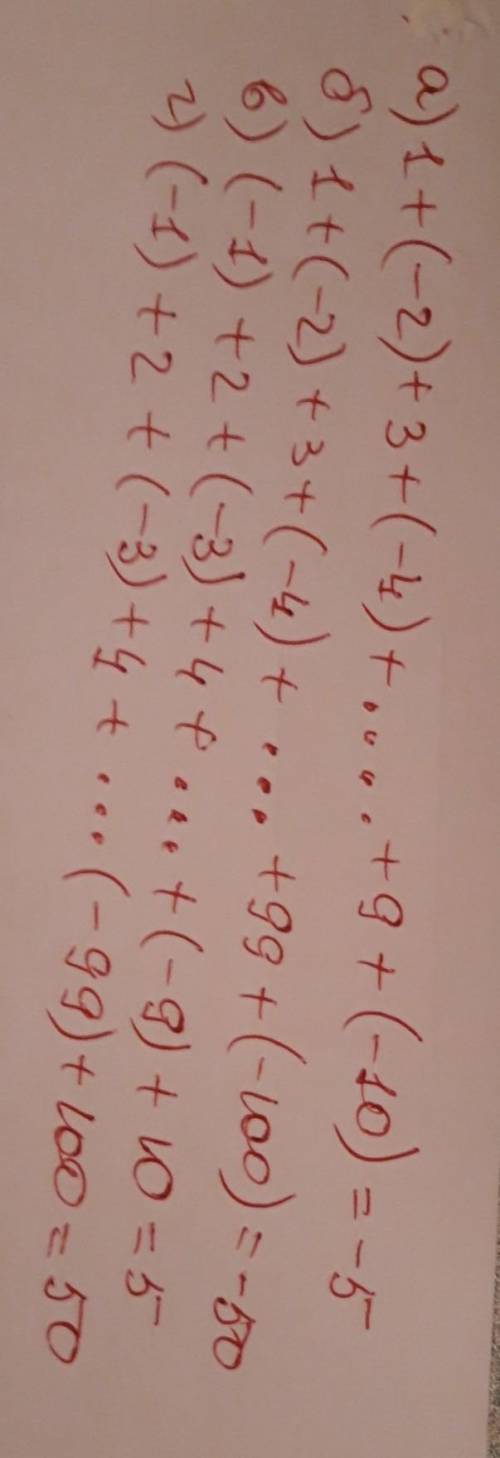 а) 1 + (-2) + 3 + (-4) + .... + 9 + (-10) = -5
б) 1 + (-2) + 3 + (-4) + ... + 99 + (-100) = -50
в) (-1) + 2 + (-3) + 4 + ... + (-9) + 10 = 5
г) (-1) + 2 + (-3) + 4 + ... (-99) + 100 = 50